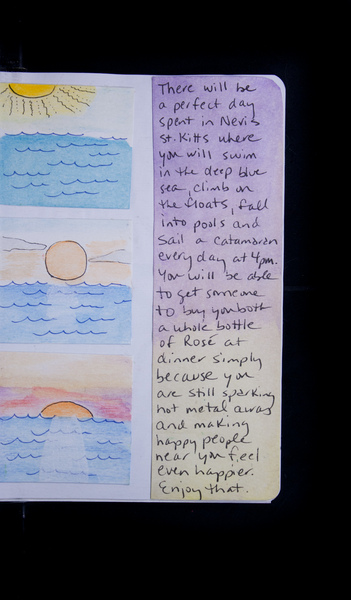 There will be
a perfect day
spent in Nevis
St. Kitts where
you will swim
in the deep blue
sea, climb on
the floats, fall
into pools and
Sail a catamaran
every day at 4pm.
You will be able
to get someone
to buy you both
a whole bottle
of Rosé at
dinner simply
because you
are still sparking
hot metal auras
and making
happy people
near you feel
even happier.
Enjoy that.